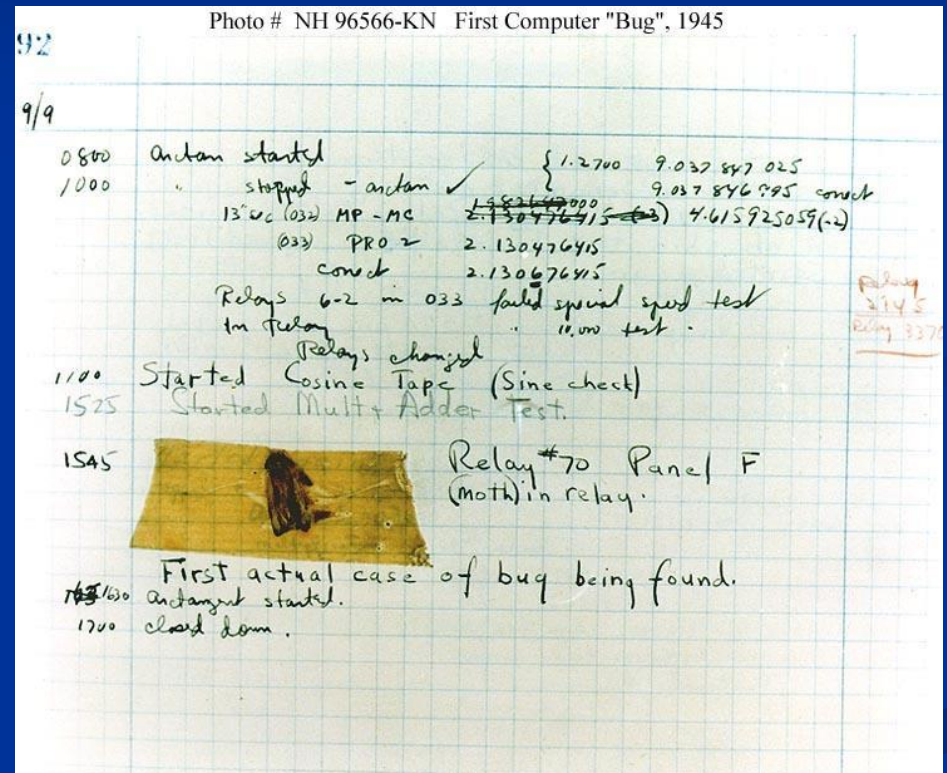 Photo # NH 96566-KN First Computer "Bug", 1945
92
9/9
0800 arctan started { 1.2700 9.037 847 025
1000 " stopped - arctan ✓ 9.037 846 995 correct
13" uc (032) MP - MC 2.130476415 (-3) 4.615925059(-2)
(033) PRO 2 2.130476415
correct 2.130676415
Relays 6-2 in 033 failed special speed test
In relay " 10.000 test.
Relay
2145
Relay 3370
Relays changed
1100 Started Cosine Tape (Sine check)
1525 Started Mult + Adder Test.
1545 Relay #70 Panel F
(moth) in relay.
First actual case of bug being found.
1630 arctangent started.
1700 closed down.